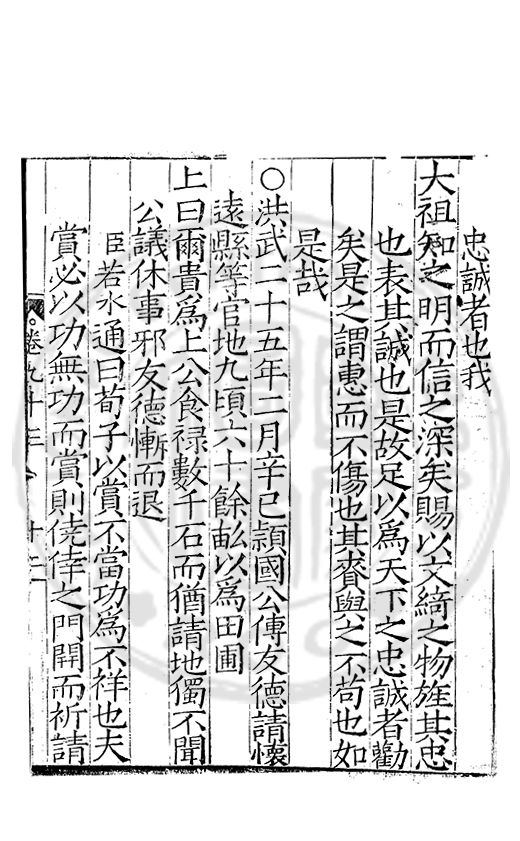 忠誠者也我
太祖知之明而信之深矣賜以文綺之物旌其忠
也表其誠也是故足以為天下之忠誠者勸
矣是之謂惠而不傷也其賚與之不苟也如
是哉
○洪武二十五年二月辛巳頴國公傅友德請懷
遠縣等官地九頃六十餘畝以為田圃
上曰爾貴為上公食祿數千石而猶請地獨不聞
公議休事邪友德慚而退
臣若水通曰荀子以賞不當功為不祥也夫
賞必以功無功而賞則僥倖之門開而祈請
卷九十三